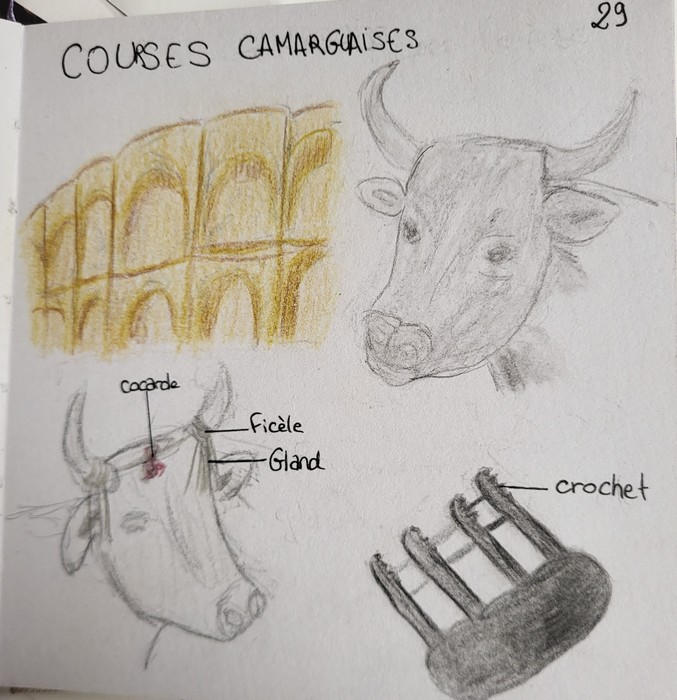 29
COURSES CAMARGUAISES
cocarde
Ficèle
Gland
crochet